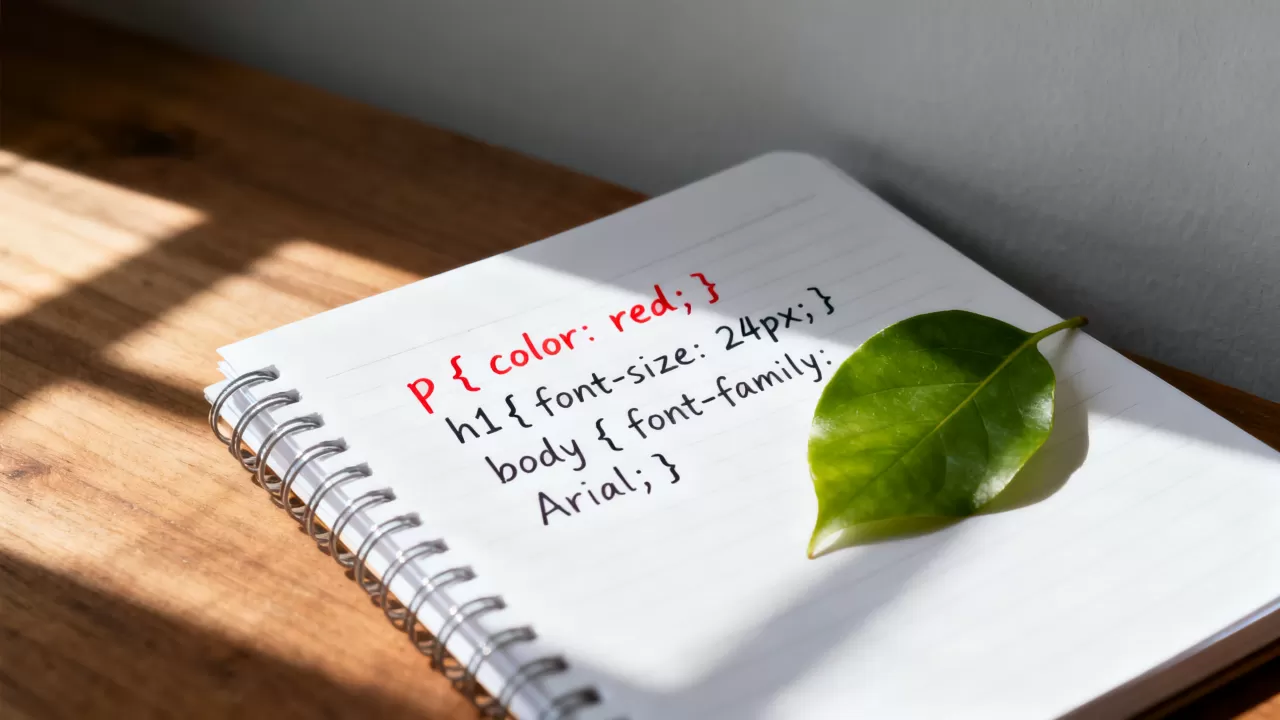 p { color: red; }
h1 { font-size: 24px; }
body { font-family:
Arial; }